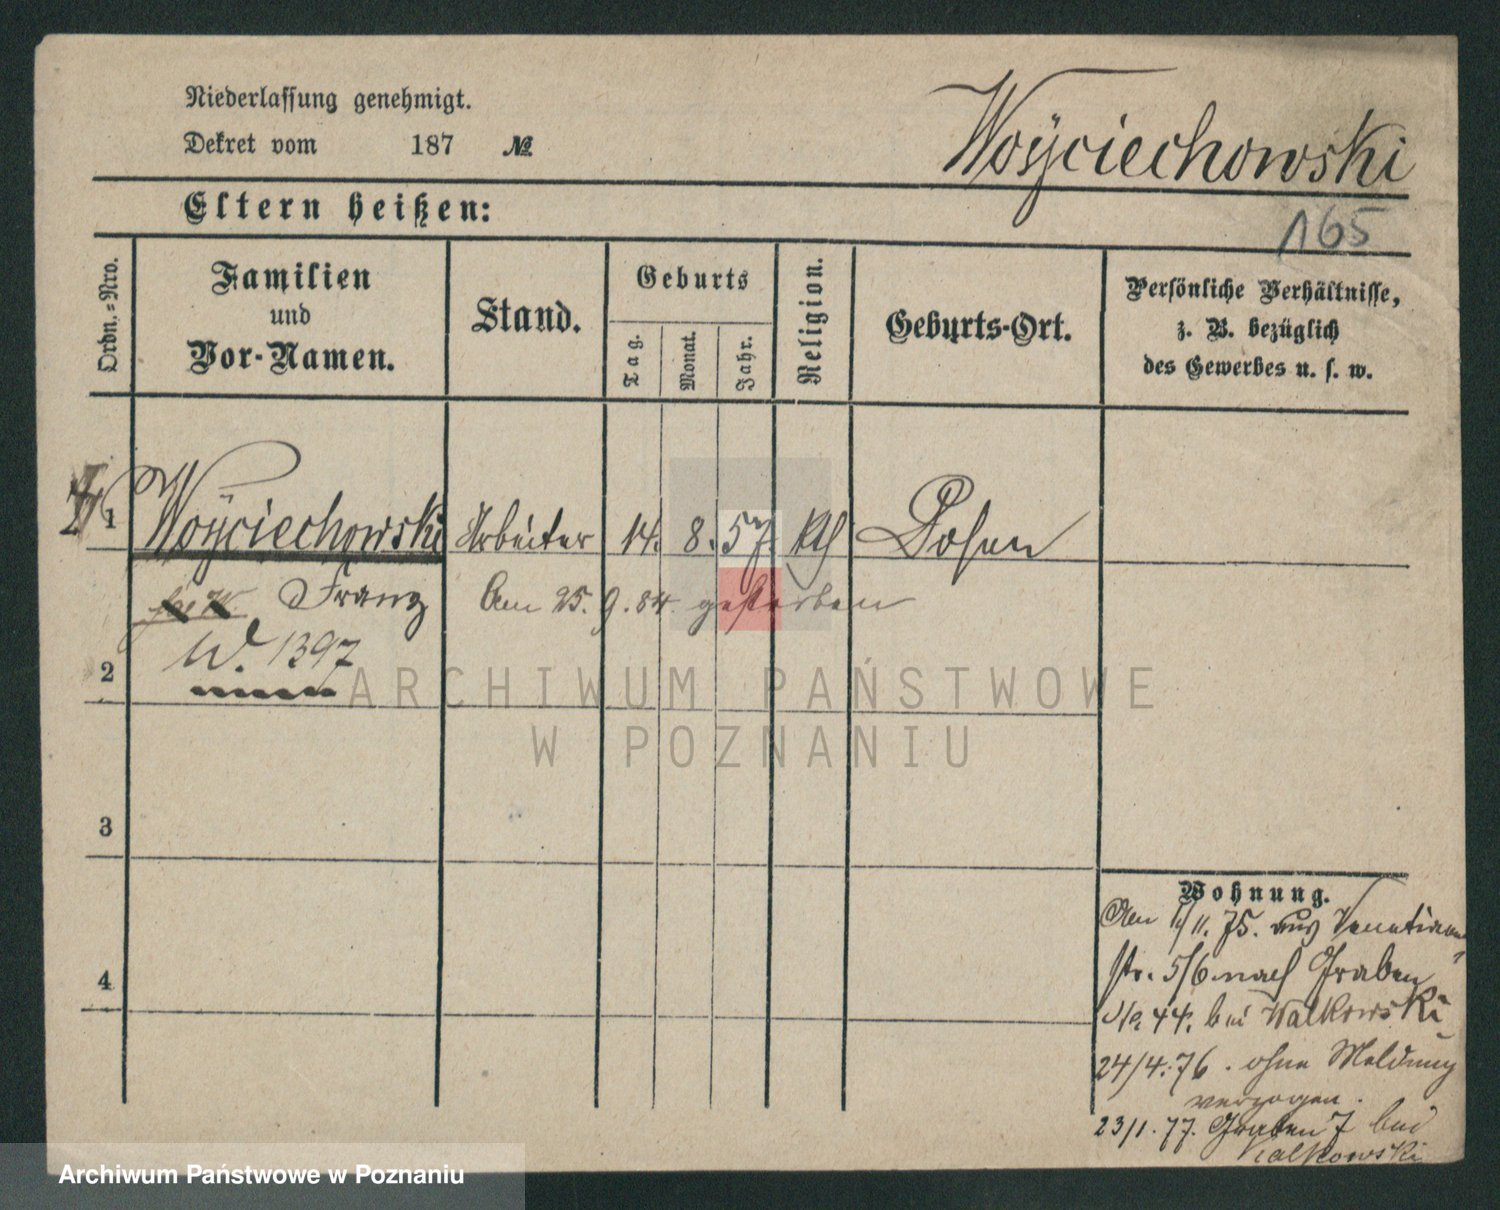 Niederlassung genehmigt.
Dekret vom 187 №
Woÿciechowski
Eltern heißen:
165
Ordn.-Nro.
Familien
und
Vor-Namen.
Stand.
Geburts
Tag.
Monat.
Jahr.
Religion.
Geburts-Ort.
Persönliche Verhältnisse,
z. B. bezüglich
des Gewerbes u. s. w.
1 Woÿciechowski Arbeiter 14. 8. 57. kth Posen
Franz Am 25. 9. 84. gestorben
W. 1397
2
ARCHIWUM PAŃSTWOWE
W POZNANIU
3
4
Wohnung.
Am 11. 75. aus Venetianer
str. 5/6 nach Graben
No. 44. bei Walkowski
24/4. 76. ohne Meldung
verzogen.
23/1. 77. Graben 7 bei
Walkowski
Archiwum Państwowe w Poznaniu